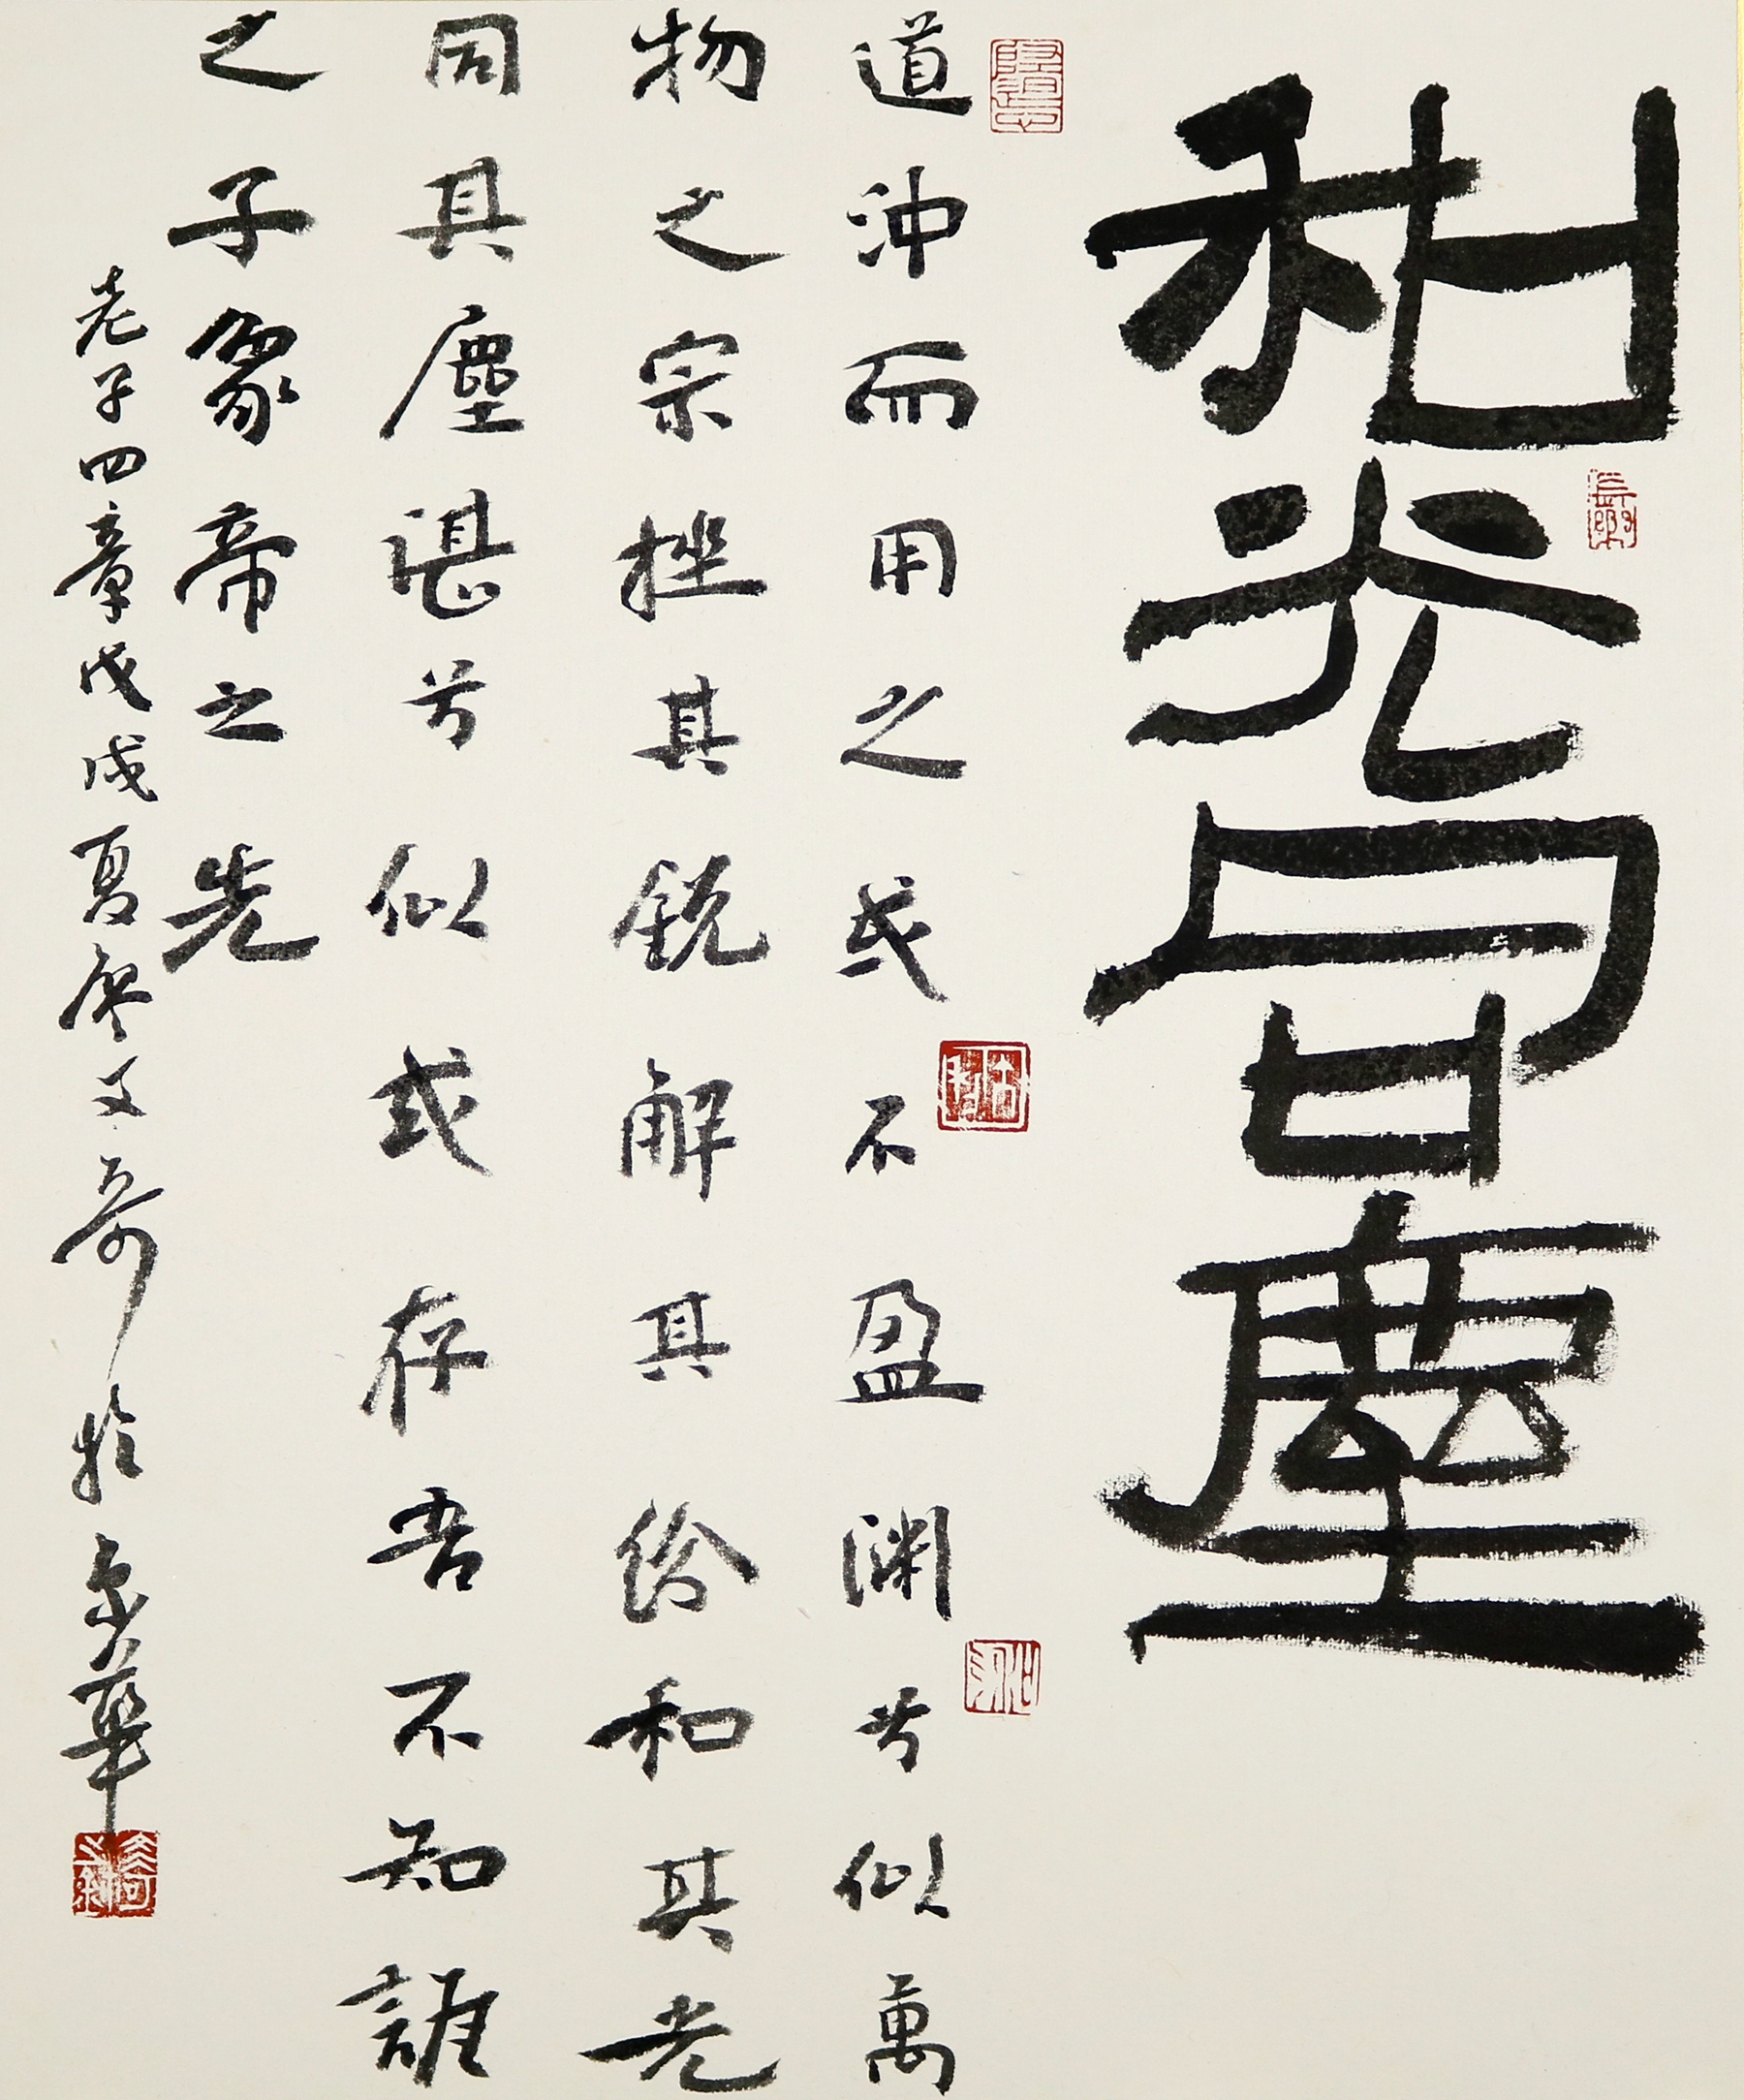 和光同塵
道沖而用之或不盈渊兮似萬
物之宗挫其銳解其紛和其光
同其塵湛兮似或存吾不知誰
之子象帝之先
老子四章戊戌夏廖文奇於京華